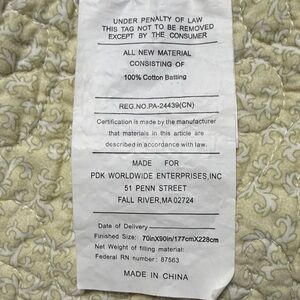 UNDER PENALTY OF LAW
THIS TAG NOT TO BE REMOVED
EXCEPT BY THE CONSUMER
ALL NEW MATERIAL
CONSISTING OF
100% Cotton Batting
REG.NO.PA-24439(CN)
Certification is made by the manufacturer
that materials in this article are
described in accordance with law.
MADE FOR
PDK WORLDWIDE ENTERPRISES,INC
51 PENN STREET
FALL RIVER,MA 02724
Date of Delivery
Finished Size: 70inX90in/177cmX228cm
Net Weight of filling material:
Federal RN number: 87563
MADE IN CHINA